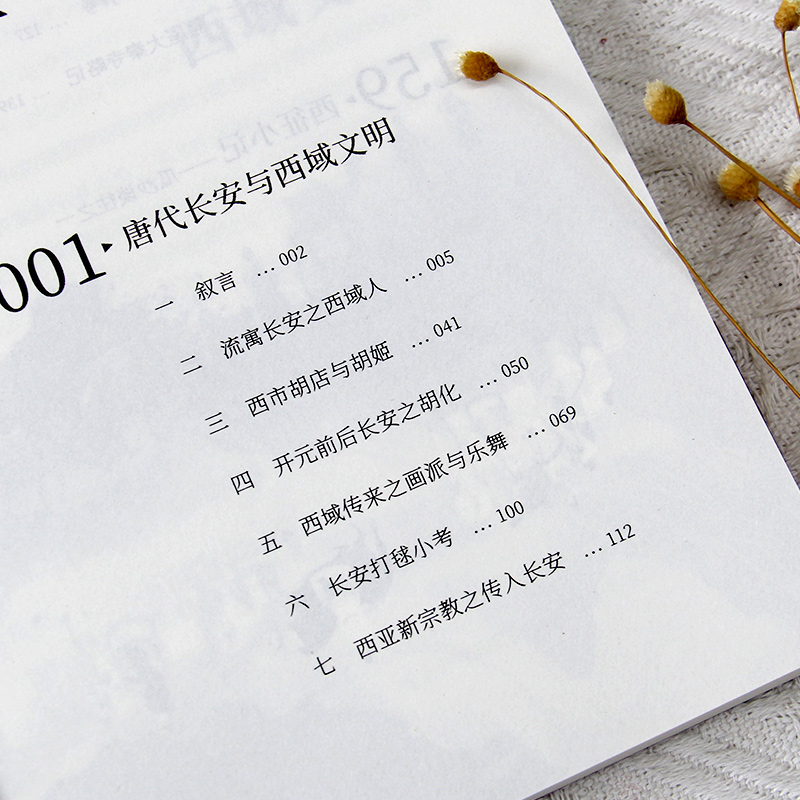 001▸唐代长安与西域文明
一 叙言 … 002
二 流寓长安之西域人 … 005
三 西市胡店与胡姬 … 041
四 开元前后长安之胡化 … 050
五 西域传来之画派与乐舞 … 069
六 长安打毬小考 … 100
七 西亚新宗教之传入长安 … 112